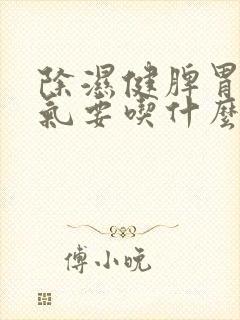 除濕健脾胃
氣要喫什麼
傅小晚